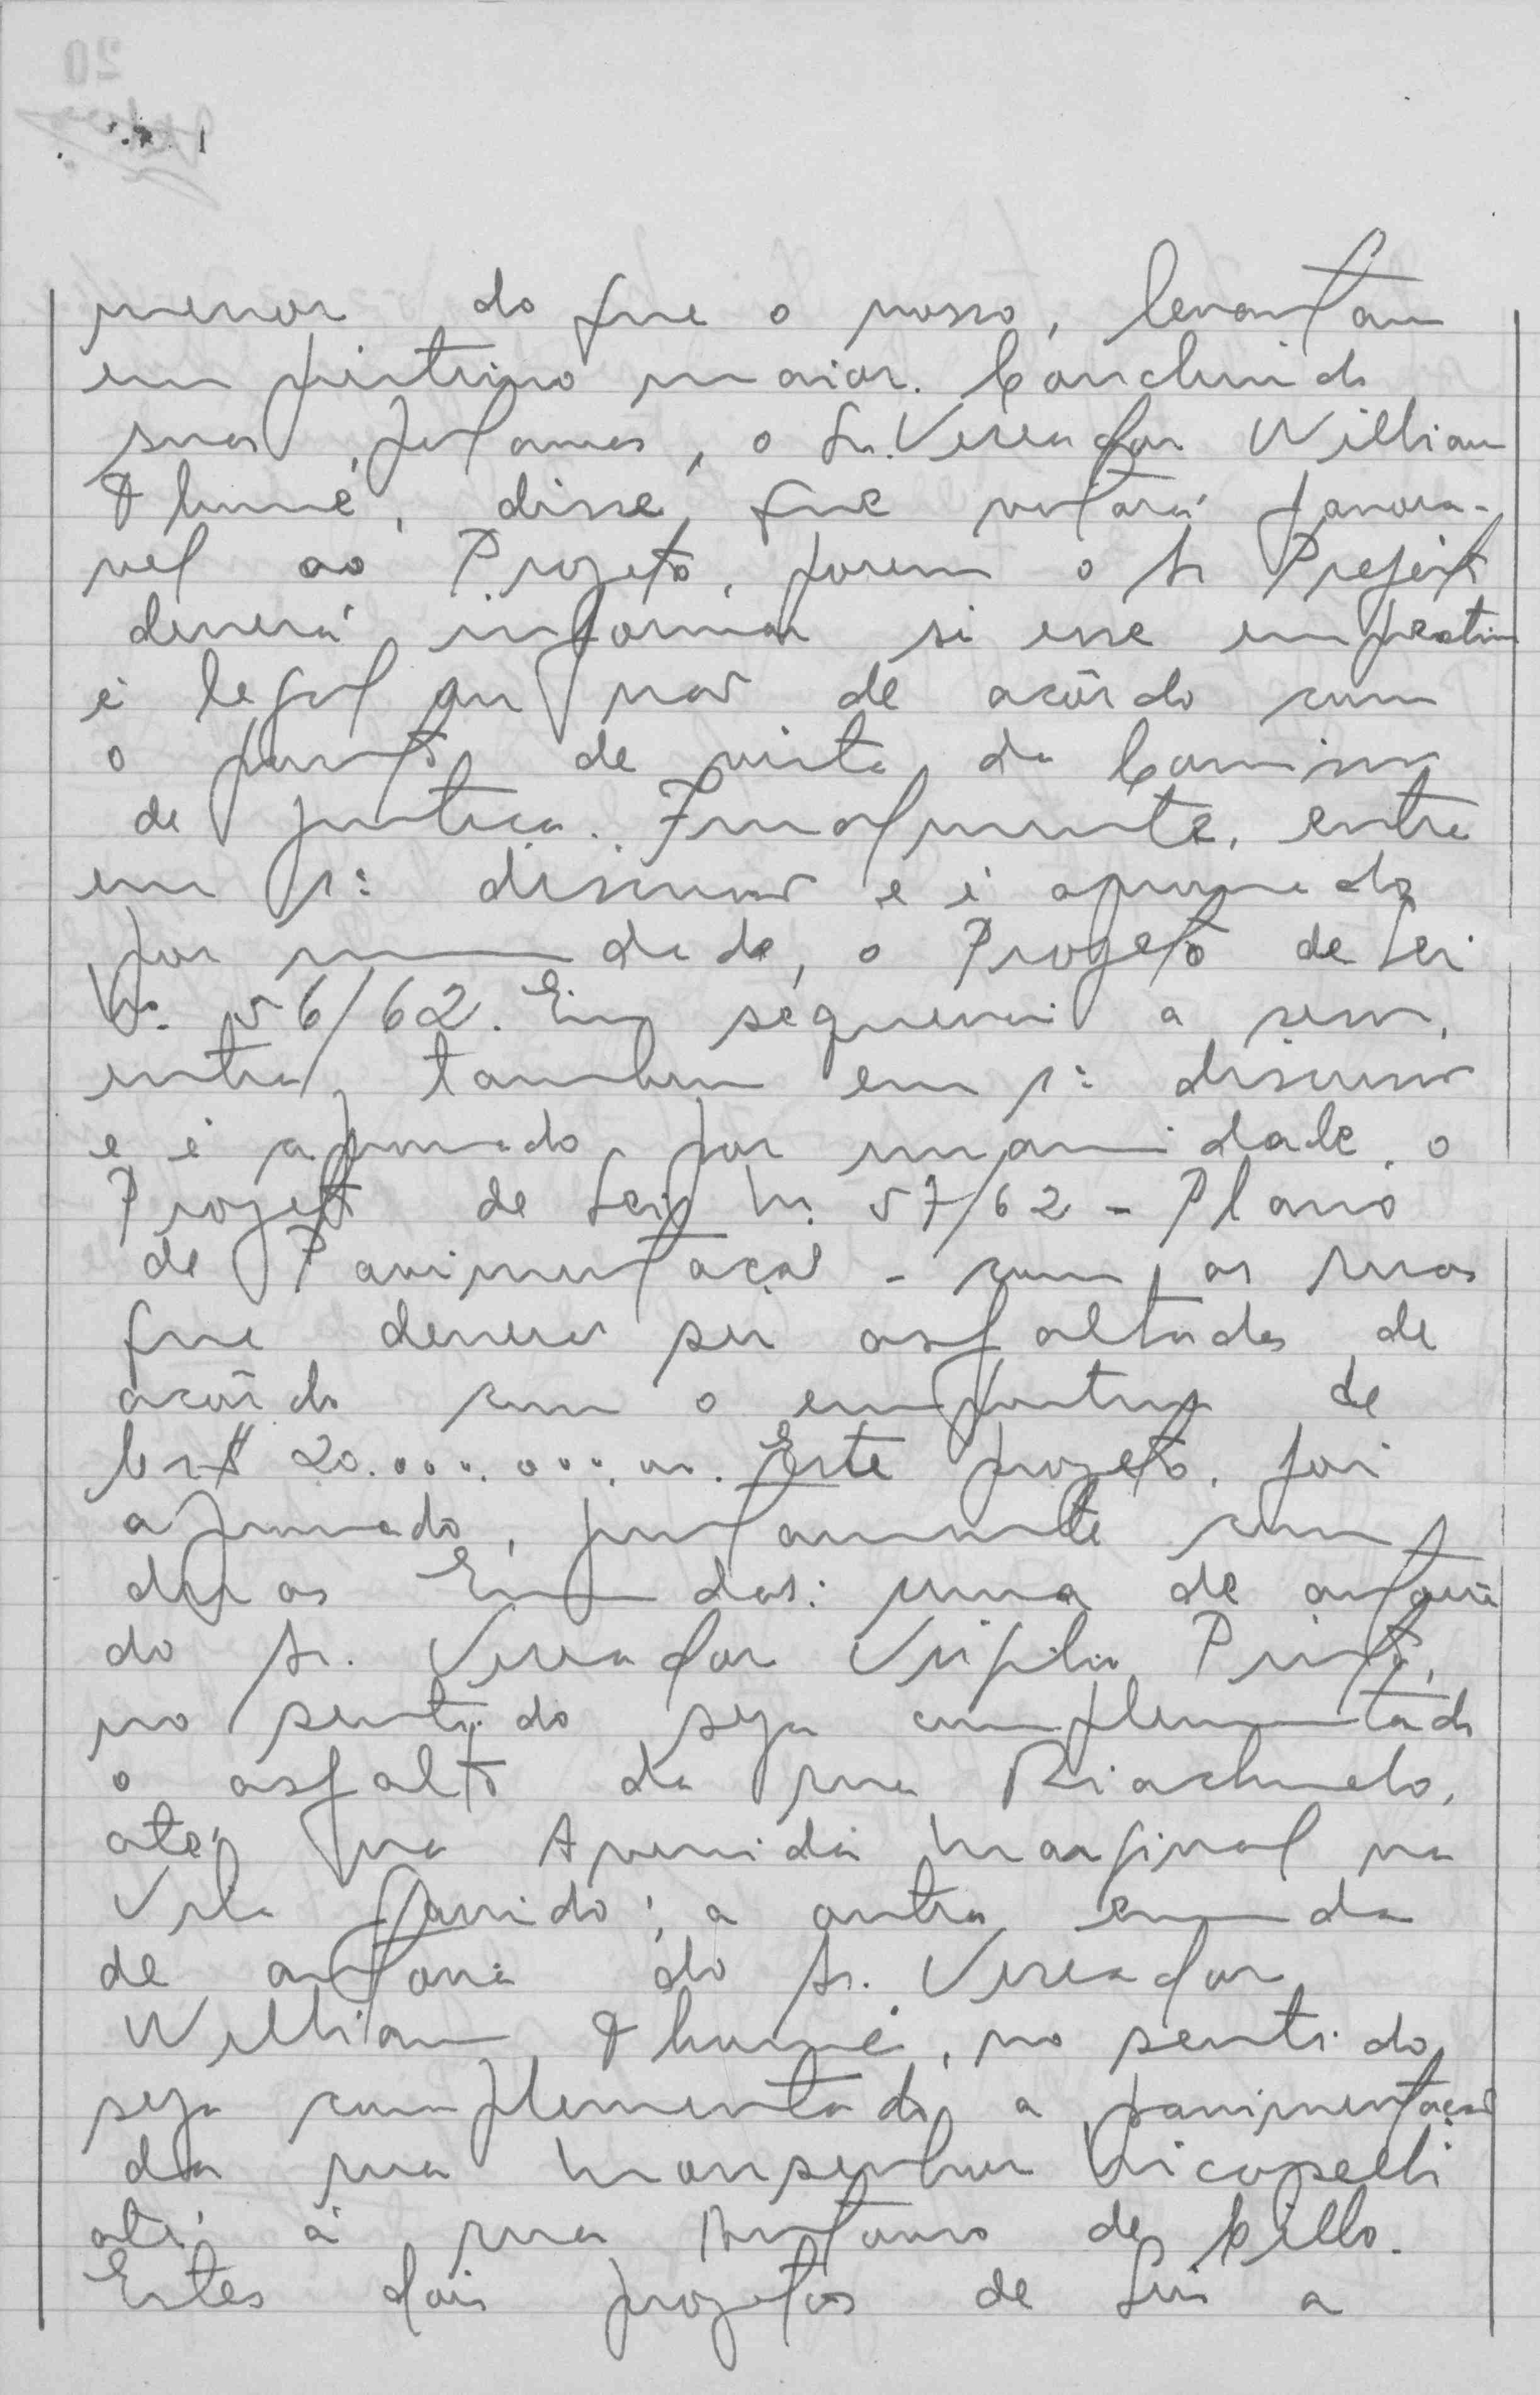 menor do que o nosso, levantam
emprestimo maior. Concluindo
suas palavras, o Sr. Vereador William
Thumé, disse que votará favora-
vel ao Projeto, porem o Sr Prefeito
deverá informar si esse emprestimo
é legal ou não de acôrdo com
o ponto de vista da Comissão
de Justiça. Finalmente, entra
em 1ª discussão e é aprovado
por unanimidade, o Projeto de Lei
Nº 56/62. Em sequencia a sessão,
entra, tambem em 1ª discussão
e é aprovado por unanimidade, o
Projeto de Lei Nº 57/62 - Plano
de Pavimentação - com as ruas
que deverão ser asfaltadas de
acôrdo com o emprestimo de
Cr$ 20.000.000,00. Este projeto, foi
aprovado, juntamente com
duas Emendas: uma de autoria
do Sr. Vereador Virgilio Pinto,
no sentido seja complementado
o asfalto da rua Riachuelo,
até na Avenida Marginal na
Vila Garrido; a outra emenda
de autoria do Sr. Vereador
William Thumé, no sentido
seja complementada a pavimentação
da rua Monsenhor
até á rua de
Estes dois projetos de Leis a